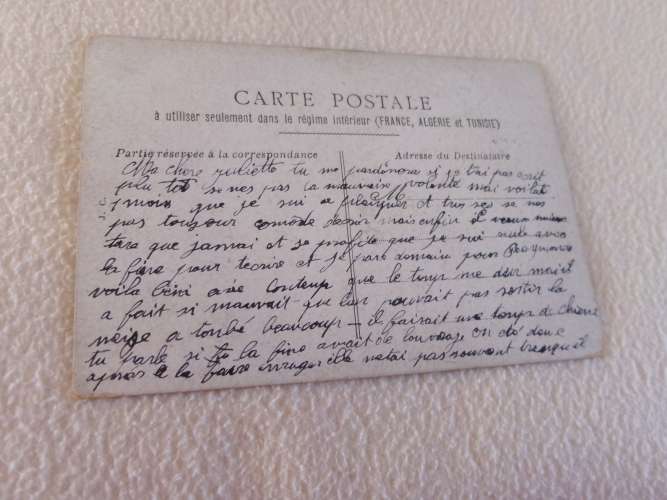 CARTE POSTALE
à utiliser seulement dans le régime intérieur (FRANCE, ALGÉRIE et TUNISIE)
Partie réservée à la correspondance
Adresse du Destinataire
J. C.
Ma chere juliette tu me pardonera si je t'ai pas ecrit
plu tot se nes pas la mauvaise volonte mai voila
mois que je sui a et tu sai se nes
pas toujour comode decrir mais enfin
tara que jamai et je profite que je sui seule avec
la fine pour tecrire et je pare domain pour
voila Cèci aire contemp que le temp me dur mai il
a fait si mauvait que lon pouvait pas sortir la
neige a tonbé beaucoup — il faisait une temps de chiens
tu parle si la fine avait de louvrage on dé donc
apres a la faire enrager elle netai pas souvent tranquil